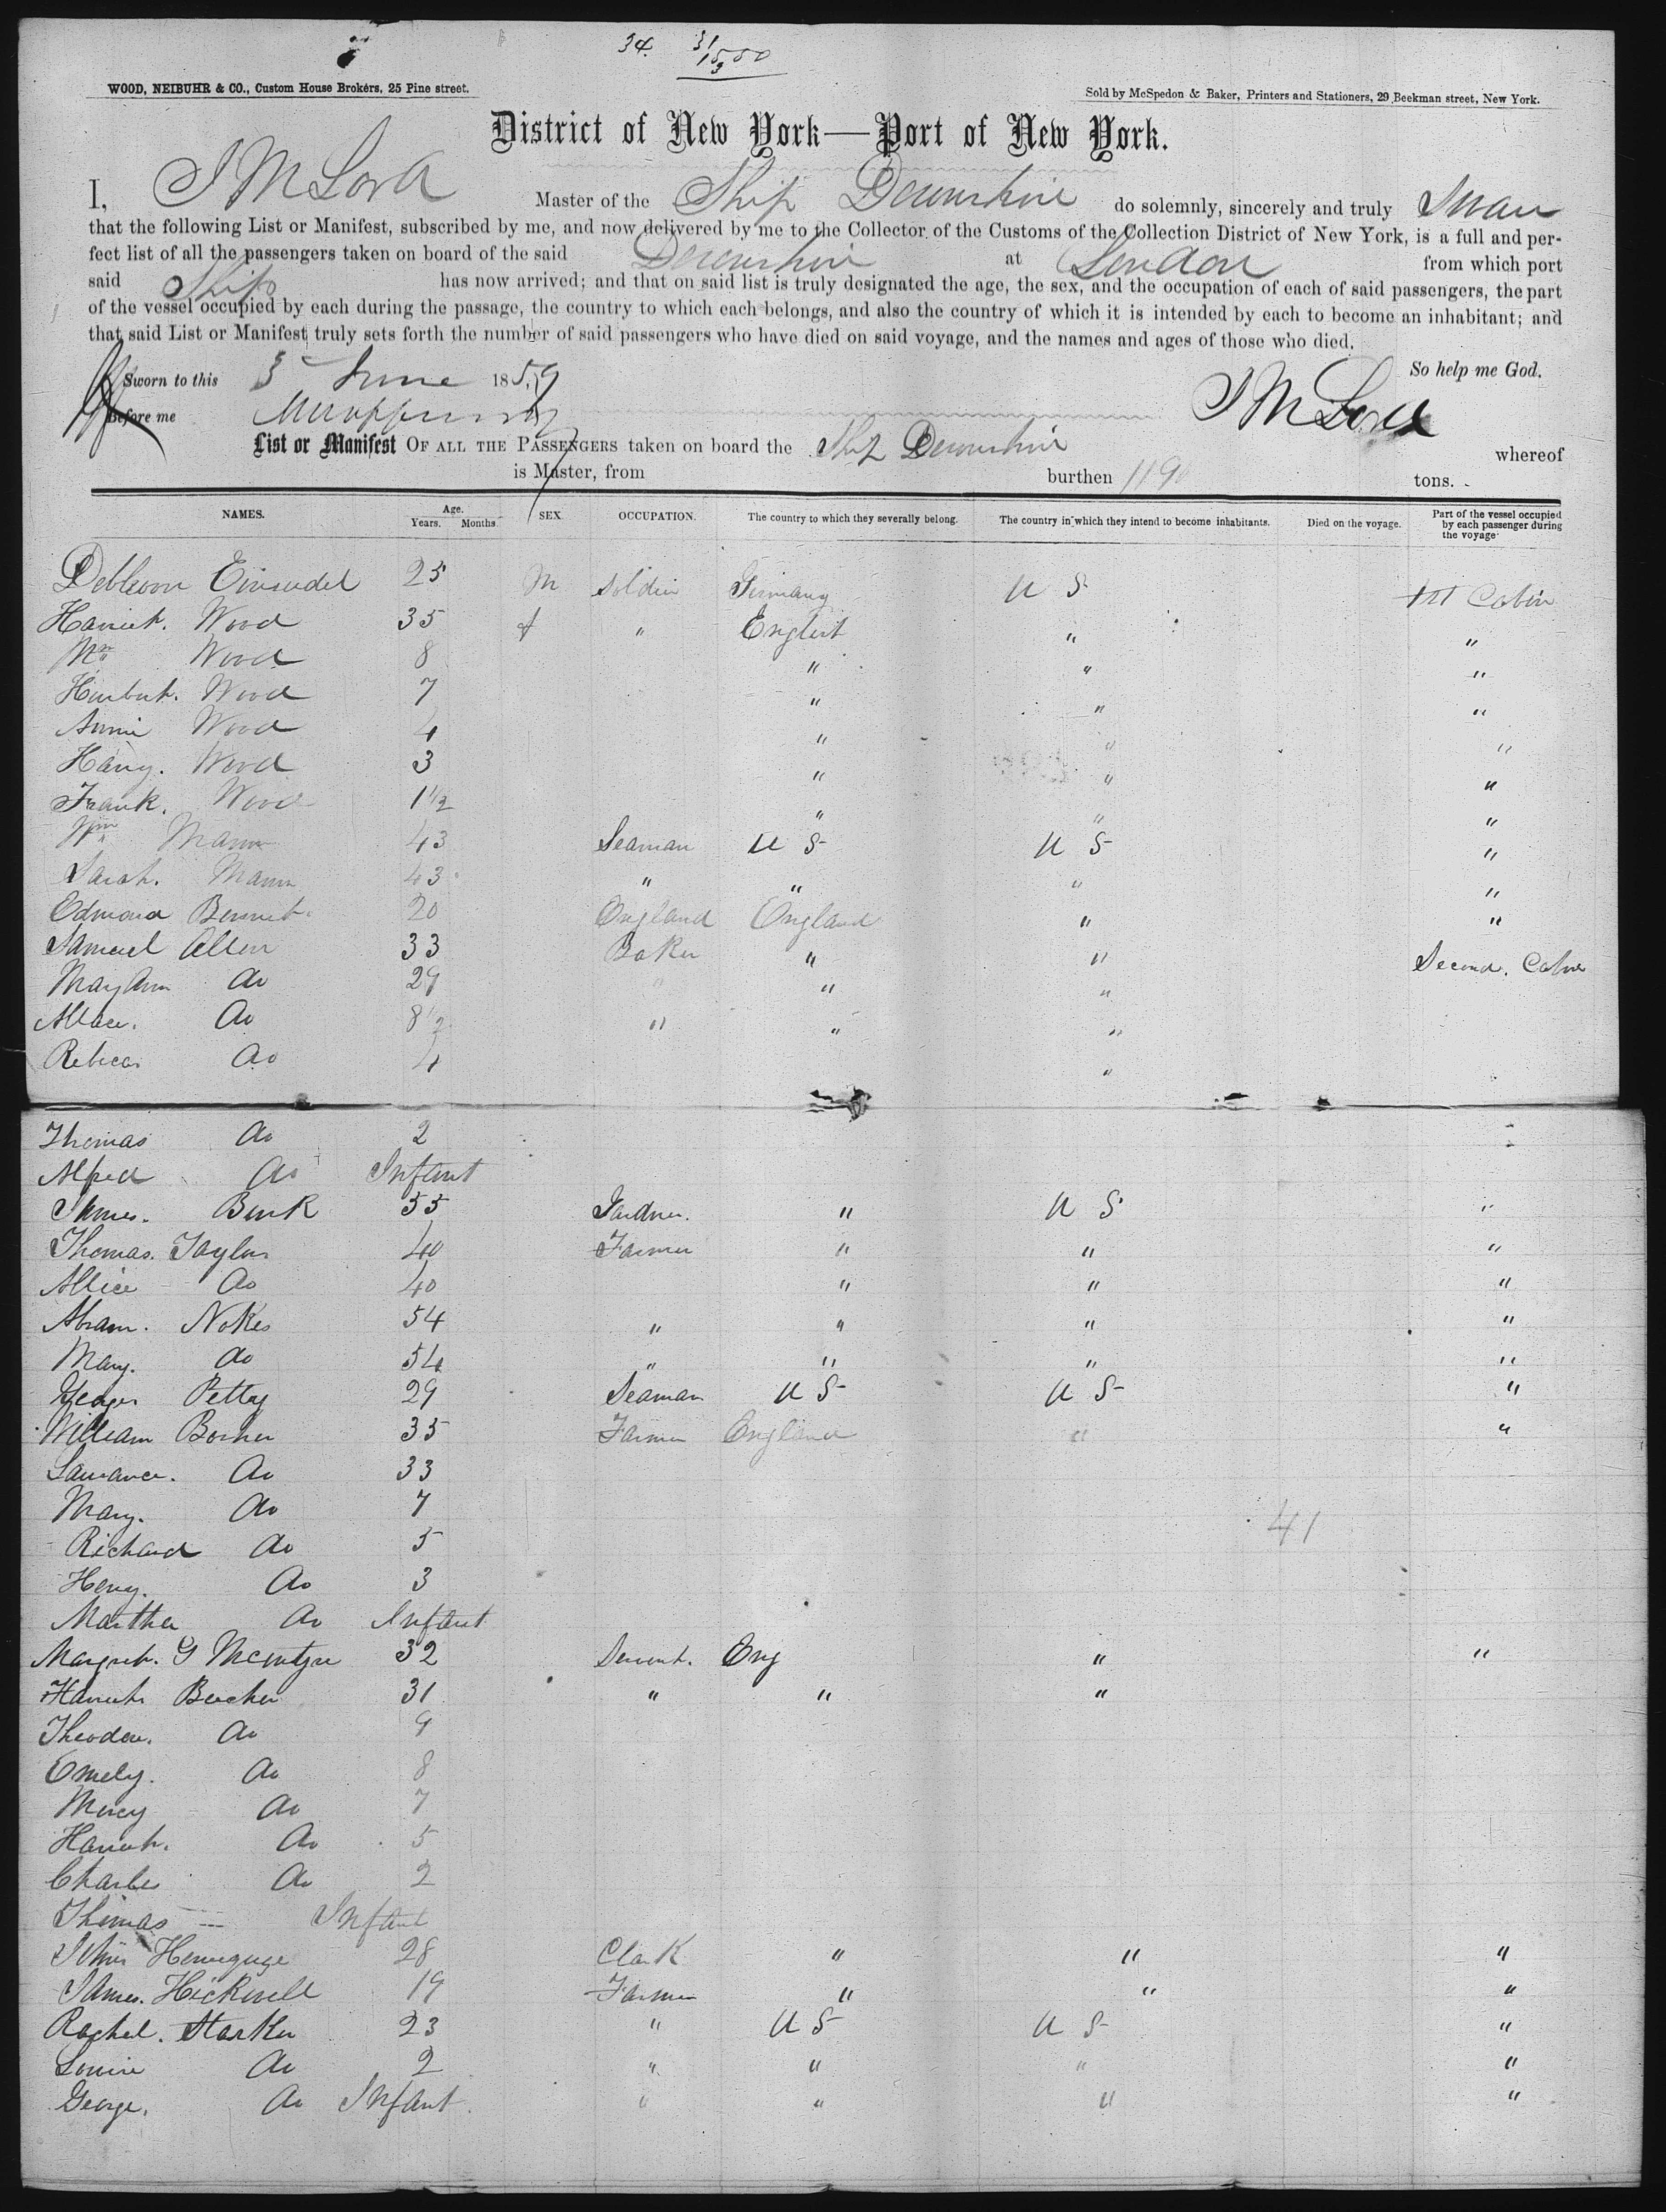 34. 31
15 50
3
WOOD, NEIBUHR & CO., Custom House Brokers, 25 Pine street.
Sold by McSpedon & Baker, Printers and Stationers, 29 Beekman street, New York.
District of New York—Port of New York.
I, J M Lord Master of the Ship Devonshire do solemnly, sincerely and truly Swear
that the following List or Manifest, subscribed by me, and now delivered by me to the Collector of the Customs of the Collection District of New York, is a full and per-
fect list of all the passengers taken on board of the said Devonshire at London from which port
said Ship has now arrived; and that on said list is truly designated the age, the sex, and the occupation of each of said passengers, the part
of the vessel occupied by each during the passage, the country to which each belongs, and also the country of which it is intended by each to become an inhabitant; and
that said List or Manifest truly sets forth the number of said passengers who have died on said voyage, and the names and ages of those who died.
So help me God.
Sworn to this 3 June 1859
Before me
J M Lord
List or Manifest OF ALL THE PASSENGERS taken on board the Ship Devonshire whereof
is Master, from burthen 1190 tons.
NAMES. Age. Years. Months. SEX. OCCUPATION. The country to which they severally belong. The country in which they intend to become inhabitants. Died on the voyage. Part of the vessel occupied by each passenger during the voyage
25 M Soldier Germany U S 1st Cabin
Harriet. Wood 35 f " English " "
Wood 8 " " "
Herbert. Wood 7 " " "
Annie Wood 4 " " "
Harry. Wood 3 " " "
Frank. Wood 1 1/2 " " "
Wm Mann 43 Seaman U S U S "
Sarah. Mann 43 " " " "
Edmond Bennet 20 England England " "
Samuel Allen 33 Baker " " Second. Cabin
Mary Ann do 29 " " "
Allace. do 8 1/2 " " "
Rebecca do 4 "
Thomas do 2
Alfred do Infant
James. Burk 55 Gardner. " U S "
Thomas. Taylor 40 Farmer " " "
Allice do 40 " " "
Abram. Nokes 54 " " " "
Mary. do 54 " " " "
George Pettey 29 Seaman U S U S "
William Bocher 35 Farmer England " "
do 33
Mary. do 7
41
Richard do 5
Henry. do 3
Martha do Infant
Margret. G McIntyre 32 Servent. Eng " "
Harriet Beecher 31 " " "
Theodore. do 9
Emely. do 8
Mercy do 7
Harriet. do 5
Charles do 2
Thomas — Infant
28 Clark " " "
James. Hickwell 19 Farmer " " "
Rachel. Starker 23 " U S U S "
Louise do 2 " " " "
George. do Infant. " " " "